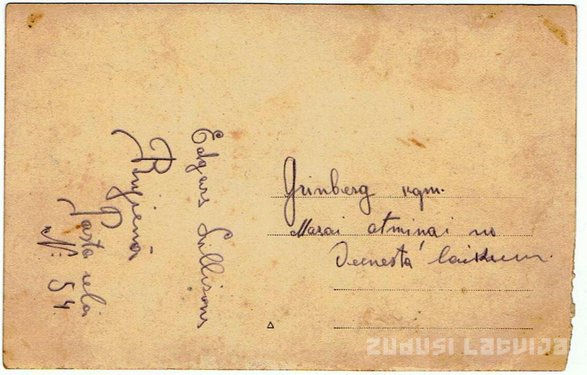 Edgars Lillisons
Rūjienā
Pasta ielā
N: 54.
Grinberg kgm.
Masai atminai no
Deenesta laikeem.
ZUDUSI LATVIJA